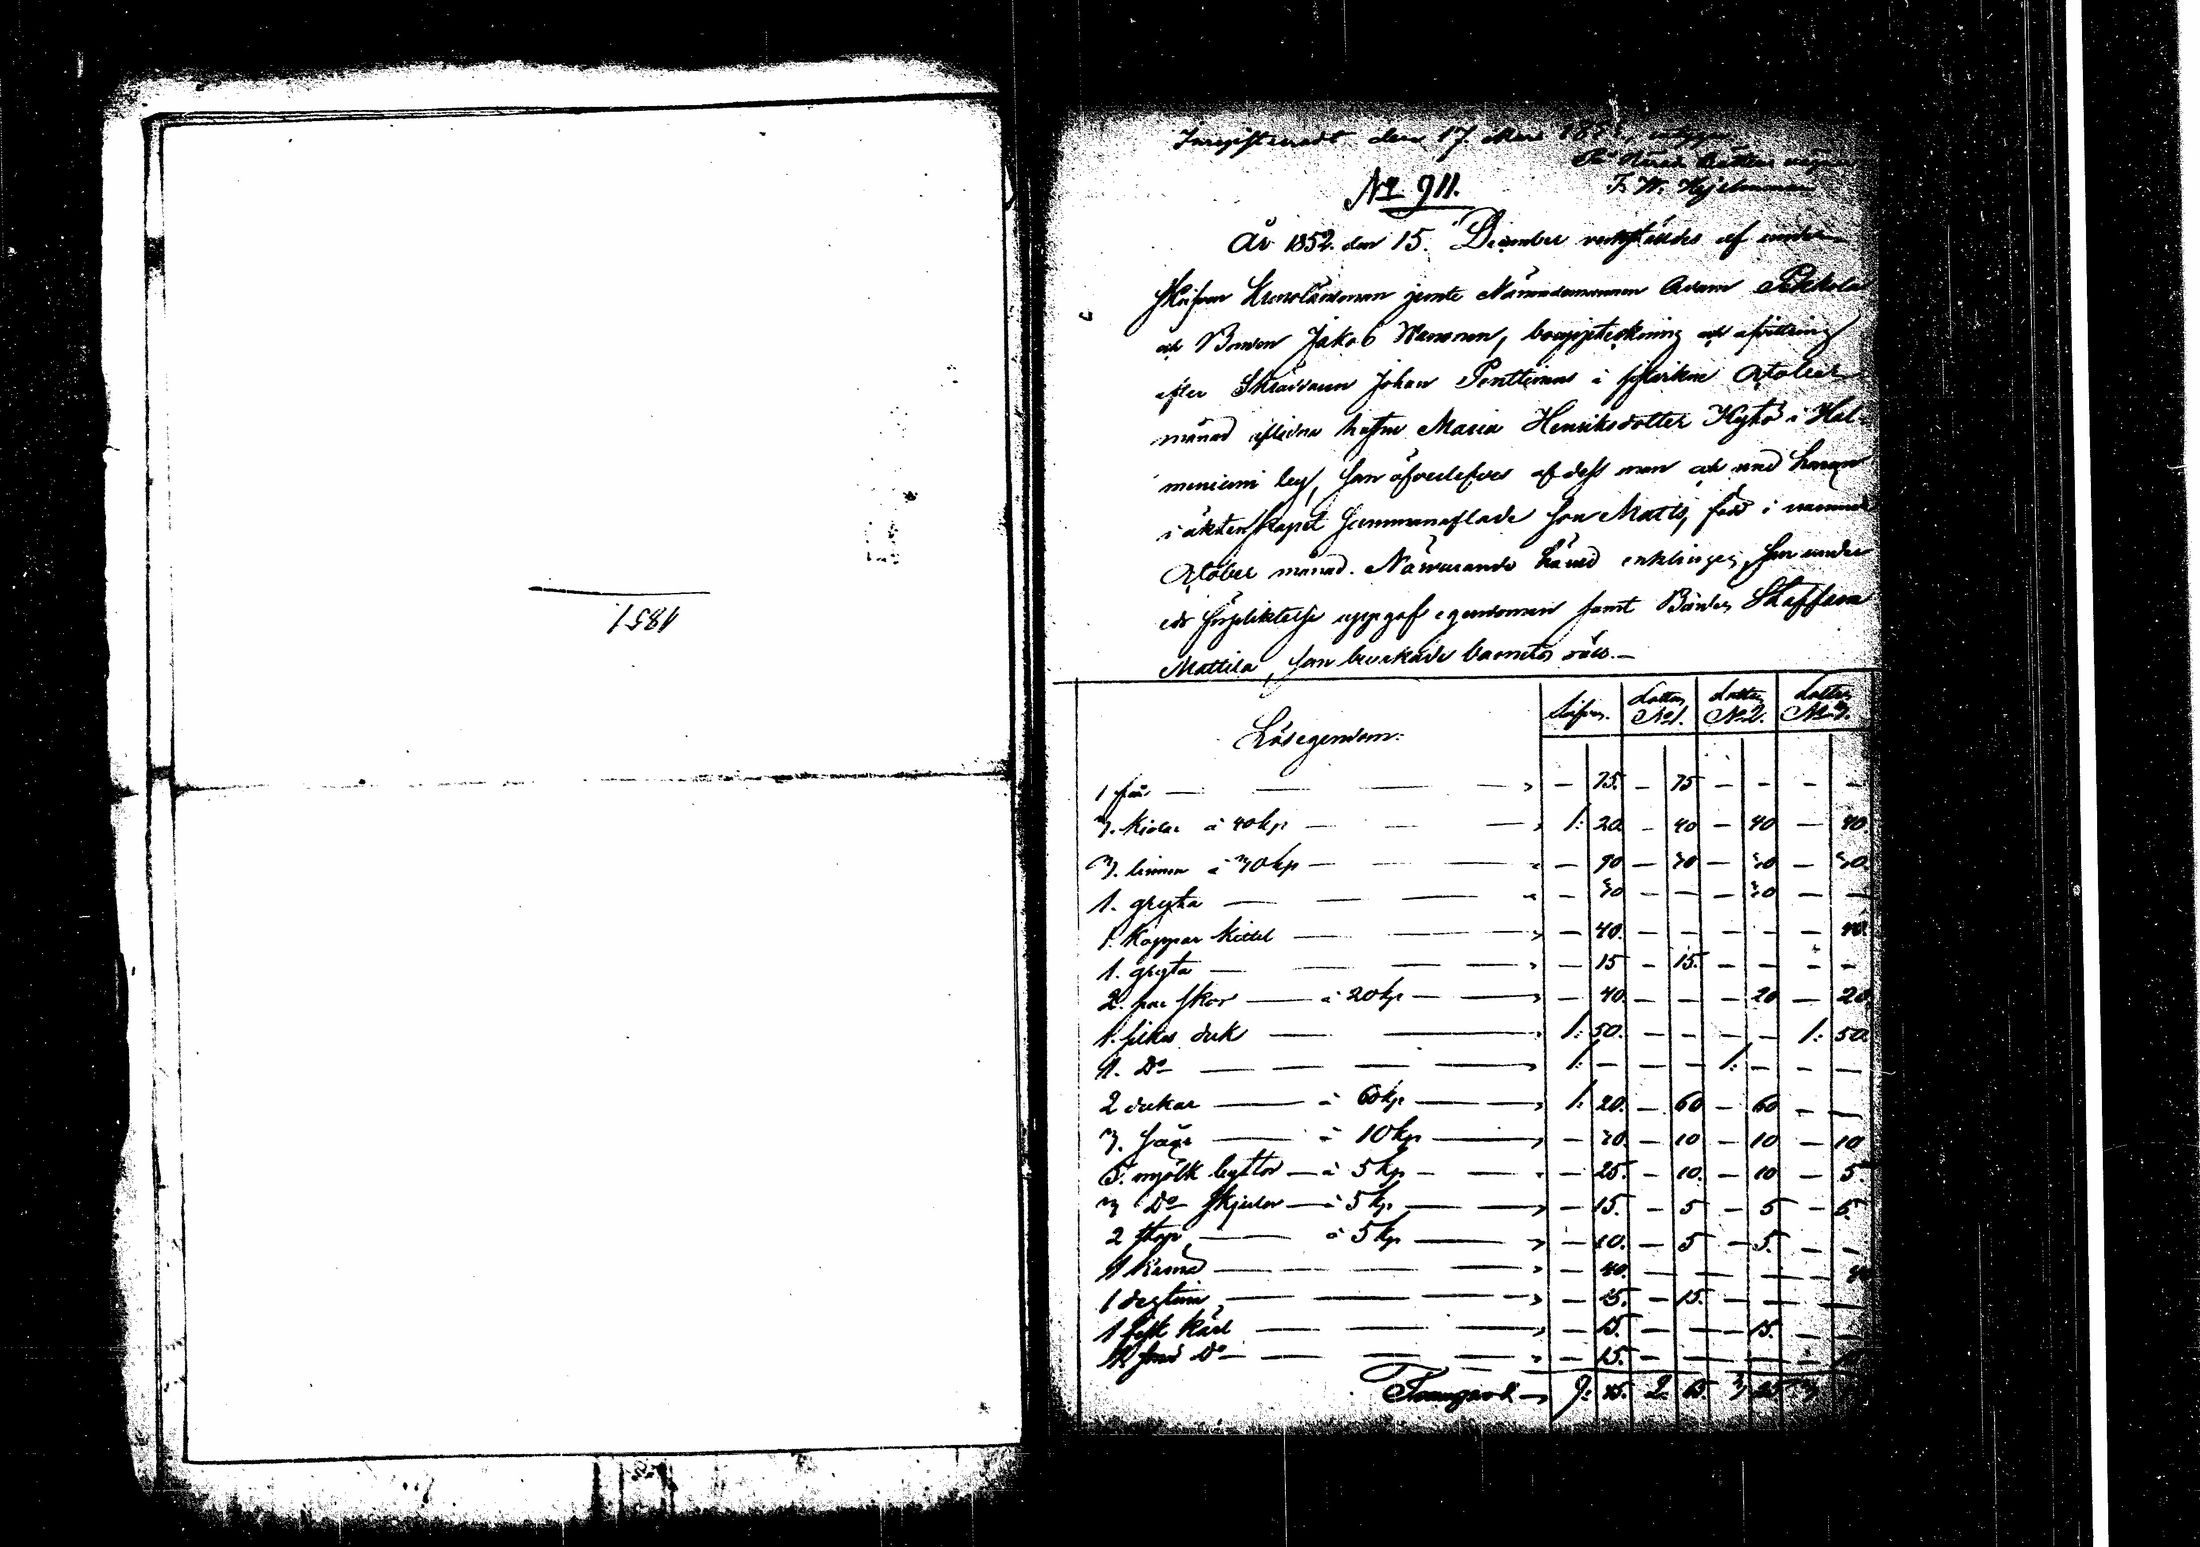 1851
Inregistreradt den 17. Mai 1853, intygar
På Härads Rättens vägnar
F. W. Hjelmman
No 911.
År 1852 den 15. December verkstäldes af under-
skrifven Kronolänsman jemte Nämndemannen Adam Pekkola
och Bonden Jakob Hannonen, bouppteckning och afvittring
efter Skräddaren Johan Ponttinens i sistvikne October
månad aflidna hustru Maria Henriksdotter Hytö i Hal-
meniemi by, som öfverlefves af dess man och med honom
i äktenskapet sammanaflade son Matts, född i nämnde
October månad. Närvarande härvid enklingen, som under
ed förpliktelse uppgaf egendomen samt Bonden Staffan
Mattila, som bevakade barnets rätt.—
Lösegendom: Lotten No 1. Lotten No 2. Lotten No 3.
1 får — — 75. — 75 — — — —
3. kjolar á 40 kp — 1: 20. — 40 — 40 — 40.
3. linnen á 30 kp — — 90 — 30 — 30 — 30.
1. gryta — — 30 — — — 30 — —
1. Koppar kittel — — 40. — — — — — 40.
1. gryta — — 15 — 15. — — — —
2. par skor — á 20 kp — — 40. — — — 20 — 20.
1. silkes duk — 1: 50. — — — — 1: 50.
1. Do — 1: — — — 1: — — —
2 dukar — á 60 kp — 1: 20. — 60 — 60 — —
3. — á 10 kp — — 30. — 10 — 10 — 10
5. mjölk byttor — á 5 kp — — 25. — 10. — 10 — 5.
3 Do skjulor — á 5 kp — — 15. — 5 — 5 — 5.
2 stop — á 5 kp — — 10. — 5 — 5. — —
1 — — 40. — — — — — 40
1 degtina — — 15. — 15. — — — —
1 fisk kärl — — 15. — — — 15. — —
1 Do — — 15. — — — — —
Transport — 9: 2. 65. 3 25 3